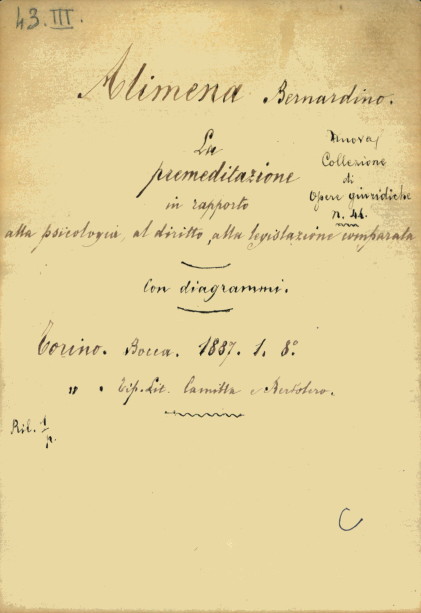 43. III.
Alimena Bernardino.
La
premeditazione
in rapporto
alla psicologia, al diritto, alla legislazione comparata
Nuova
Collezione
di
Opere giuridiche
n. 41.
Con diagrammi.
Torino. Bocca. 1887. 1. 8°.
" . Tip. Lit. Camilla e Bertolero.
Ril. 1/p.
C